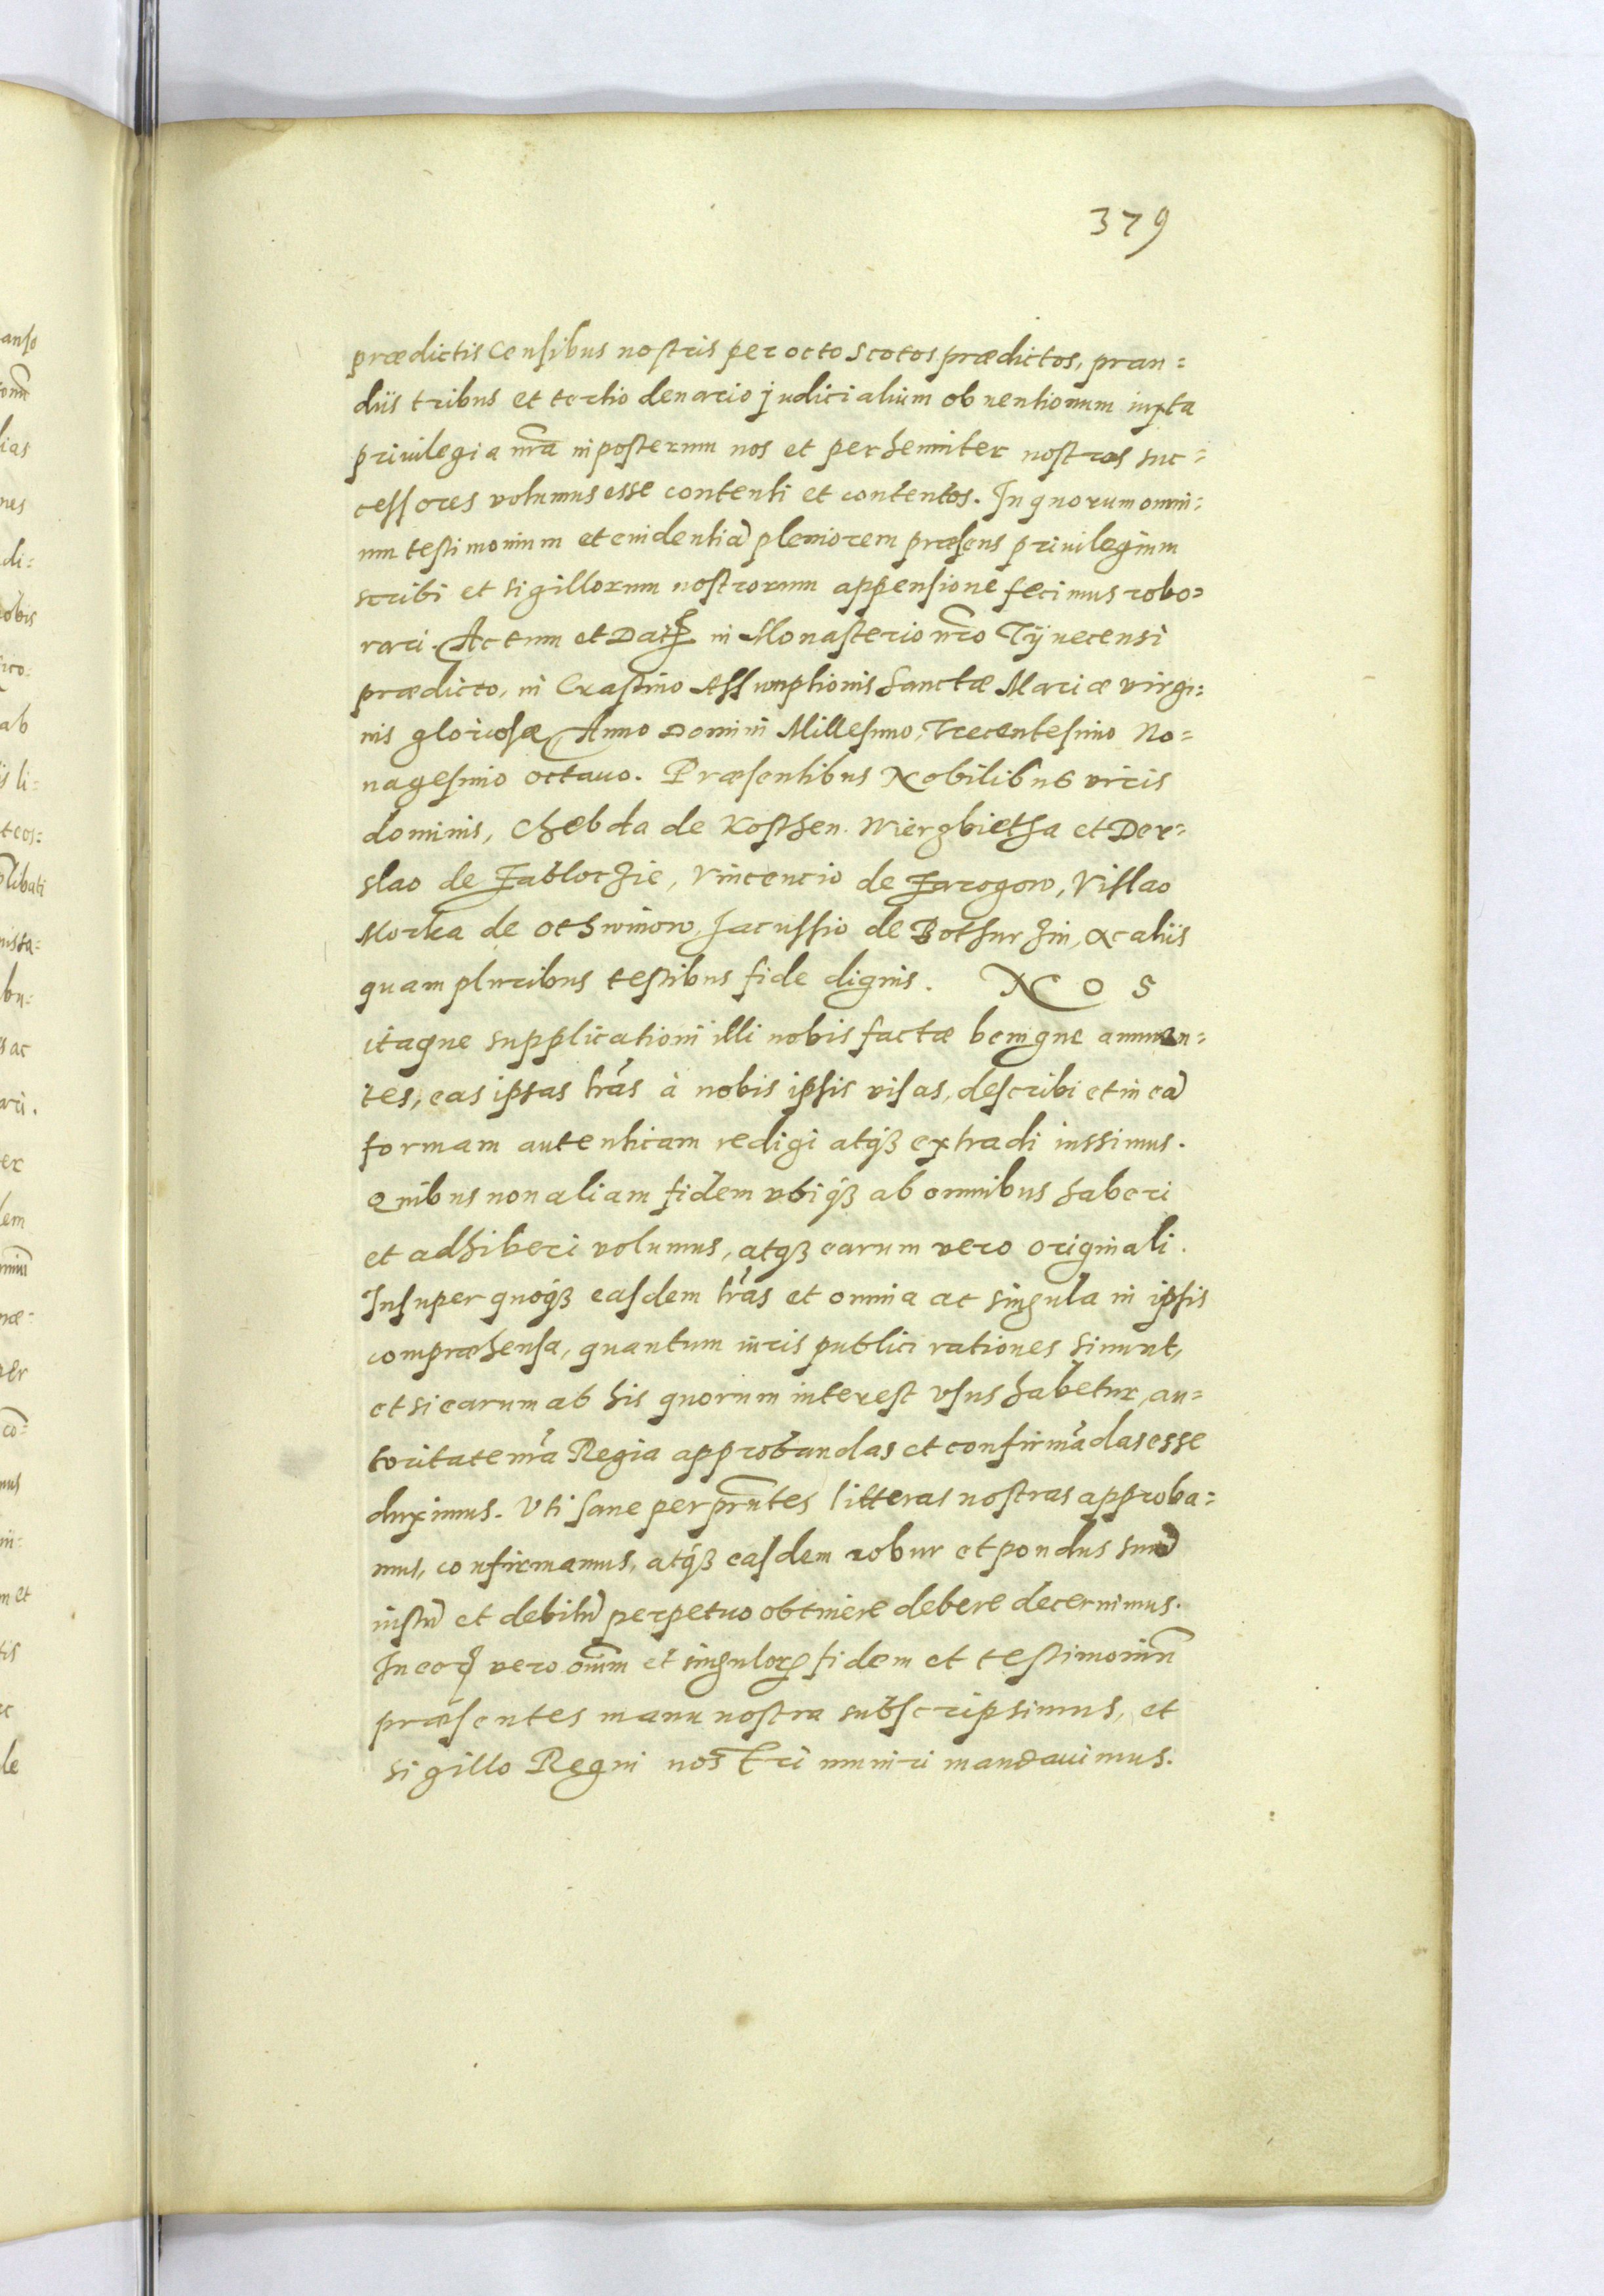 379
prædictis Censibus nostris per octo scotos prædictos, pran=
diis tribus et tertio denario judicialium obuentionum iuxta
priuilegia nra̅ inposterum nos et perhenniter nostros suc=
cessores volumus esse contenti et contentos. In quorum omni=
um testimonium et euidentia̅ pleniorem præsens priuilegium
scribi et sigillorum nostrorum appensione fecimus robo=
rari. Actum et Dat in Monasterio nr̅o Tÿnecensi
prædicto, in Crastino Assumptionis Sanctæ Mariæ virgi=
nis gloriosæ Anno Domini Millesimo, Trecentesimo No=
nagesimo octauo. Præsentibus Nobilibus viris
dominis, Chebda de Kosthen. Mierzbietha et Der=
slao de Jablochie, Vincencio de Jarogow, Vislao
Morka de othwinow, Jacussio de Bothurzin, ac aliis
quam pluribus testibus fide dignis. NOS
itaque supplicationi illi nobis factæ benigne annuen=
tes, eas ipsas lr̅as à nobis ipsis visas, describi et in ea̅
formam autenticam redigi atq3 extradi iussimus.
Quibus non aliam fidem vbiq3 ab omnibus haberi
et adhiberi volumus, atq3 earum vero originali.
Insuper quoq3 easdem lr̅as et omnia ac singula in ipsis
compræhensa, quantum iuris publici rationes sinunt,
et si earum ab his quorum interest vsus habetur, au=
toritate nr̅a Regia approbandas et confirma̅das esse
duximus. Vti sane per prn̅tes litteras nostras approba=
mus, confirmamus, atq3 easdem robur et pondus suu̅
iustu̅ et debitu̅ perpetuo obtinere debere decernimus.
In eoꝝ vero oi̅um et singuloꝝ fidem et testimoniu̅
præsentes manu nostra subscripsimus, et
sigillo Regni nostri muniri mandauimus.